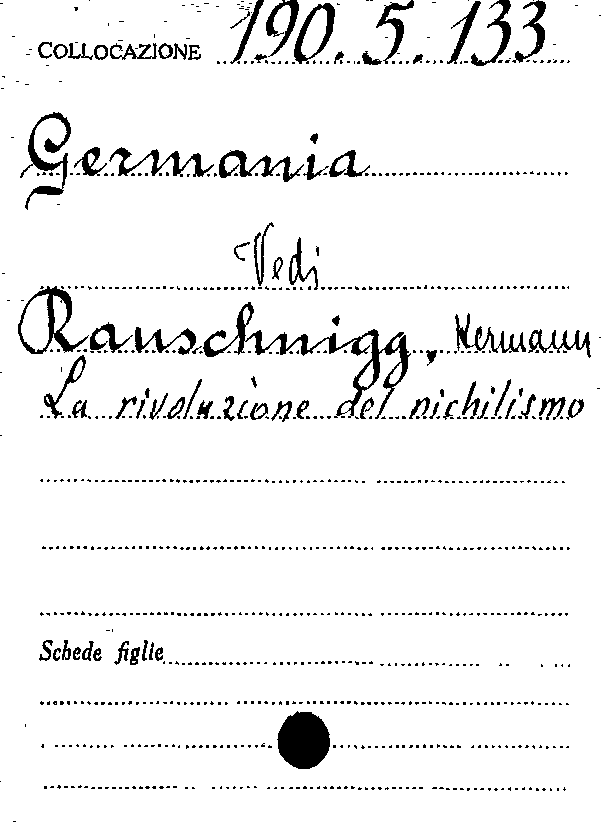 COLLOCAZIONE 190.5.133
Germania
Vedi
Rauschnigg, Hermann
La rivoluzione del nichilismo
Schede figlie